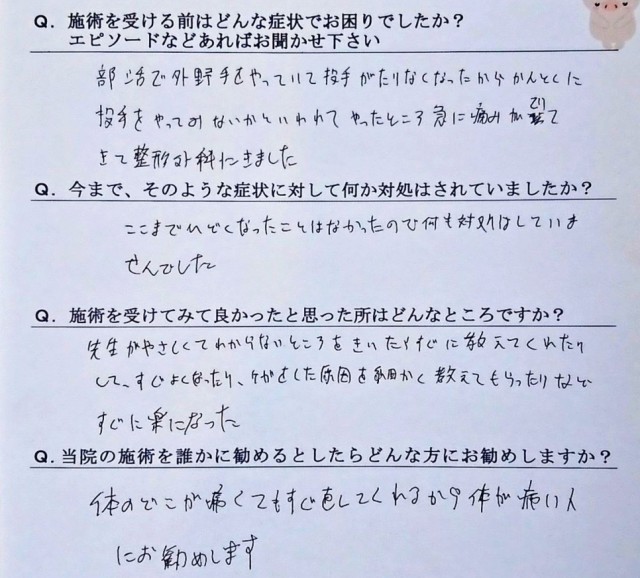 Q. 施術を受ける前はどんな症状でお困りでしたか？
エピソードなどあればお聞かせ下さい
部活で外野手をやっていて投手がたりなくなったからかんとくに
投手をやってみないかといわれてやったところ急に痛みがでて
きて整形外科にきました
Q. 今まで、そのような症状に対して何か対処はされていましたか？
ここまでひどくなったことはなかったので何も対処はしていま
せんでした
Q. 施術を受けてみて良かったと思った所はどんなところですか？
先生がやさしくてわからないところをきいたらすぐに教えてくれたり
して、すぐよくなったり、ケガをした原因を細かく教えてもらったりなど
すぐに楽になった
Q. 当院の施術を誰かに勧めるとしたらどんな方にお勧めしますか？
体のどこが痛くてもすぐ直してくれるから体が痛い人
にお勧めします